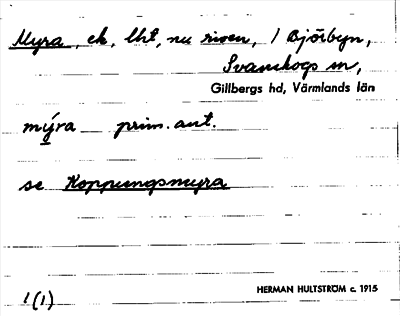 Myra, ek, lht, nu riven, 1 Björbyn,
Svanskogs sn,
Gillbergs hd, Värmlands län
mýra prim. ant.
se Koppungsmyra
1(1)
HERMAN HULTSTRÖM c. 1915